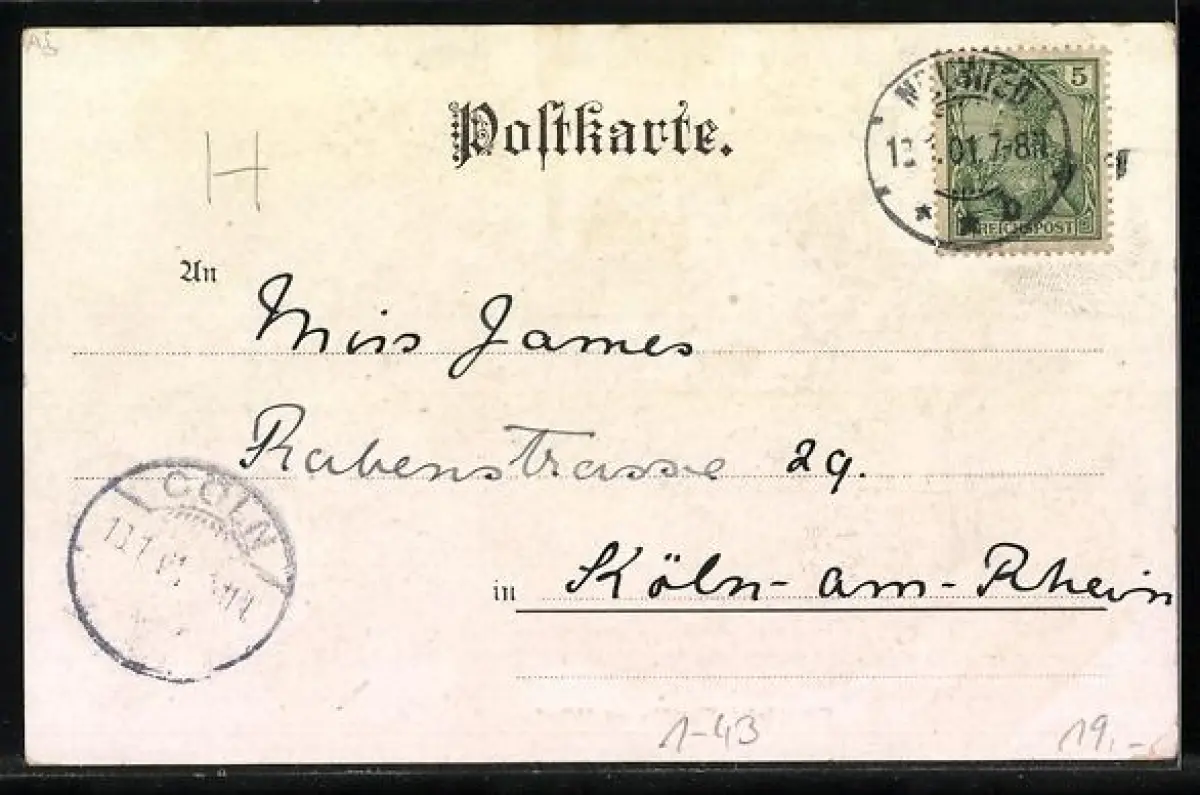 H
Postkarte.
NEUWIED
5
.01. 7-8N
b
REICHSPOST
An
Miss James
Rabenstrasse 29.
CÖLN
in Köln-am-Rhein
1-43
19,-